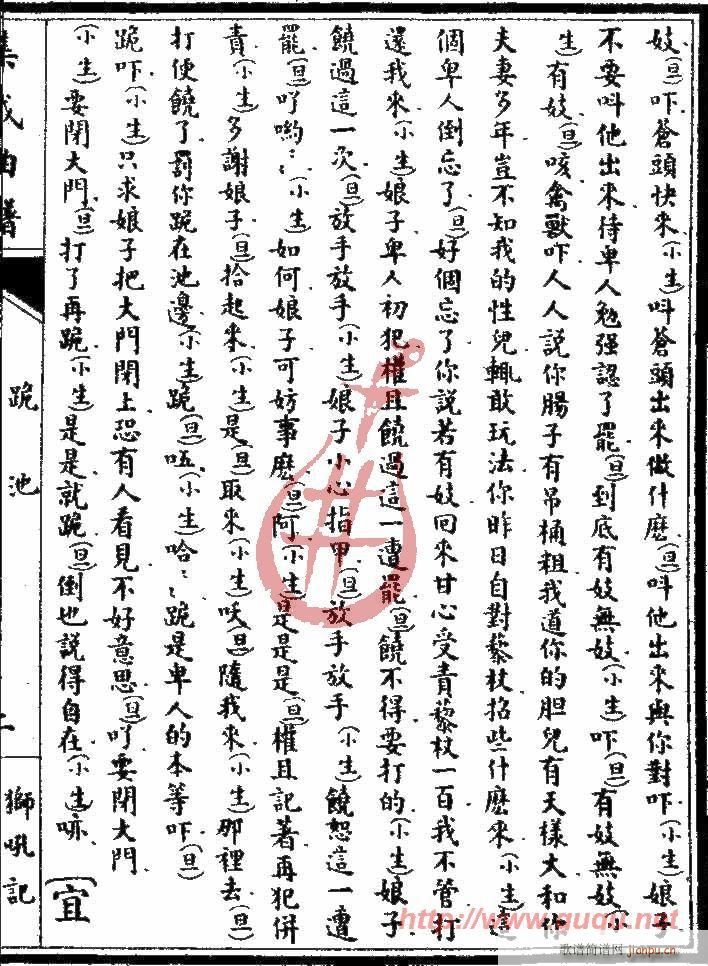 妓(旦)吓蒼頭快來(小生)叫蒼頭出來做什麽(旦)叫他出來與你對吓(小生)娘子
不要叫他出來待卑人勉强認了罷(旦)到底有妓無妓(小生)吓(旦)有妓無妓(小
生)有妓(旦)咳禽獸吓人人說你腸子有吊桶粗我道你的胆兒有天樣大和你
夫妻多年豈不知我的性兒輒敢玩法你昨日自對藜杖招些什麽來(小生)這
個卑人倒忘了(旦)好個忘了你說若有妓回來甘心受責藜杖一百我不管打
還我來(小生)娘子卑人初犯權且饒過這一遭罷(旦)饒不得要打的(小生)娘子
饒過這一次(旦)放手放手(小生)娘子小心指甲(旦)放手放手(小生)饒恕這一遭
罷(旦)吖喲(小生)如何娘子可妨事麽(旦)阿(小生)是是是(旦)權且記著再犯併
責(小生)多謝娘子(旦)拾起來(小生)是(旦)取來(小生)呅(旦)隨我來(小生)那裡去(旦)
打便饒了罰你跪在池邊(小生)跪(旦)唔(小生)哈〻跪是卑人的本等吓(旦)
跪吓(小生)只求娘子把大門閉上恐有人看見不好意思(旦)吖要閉大門
(小生)要閉大門(旦)打了再跪(小生)是是就跪(旦)倒也說得自在(小生)嚇(宜
集成曲譜
跪池
獅吼記
http://www.guqu.net
歌谱简谱网 jianpu.cn